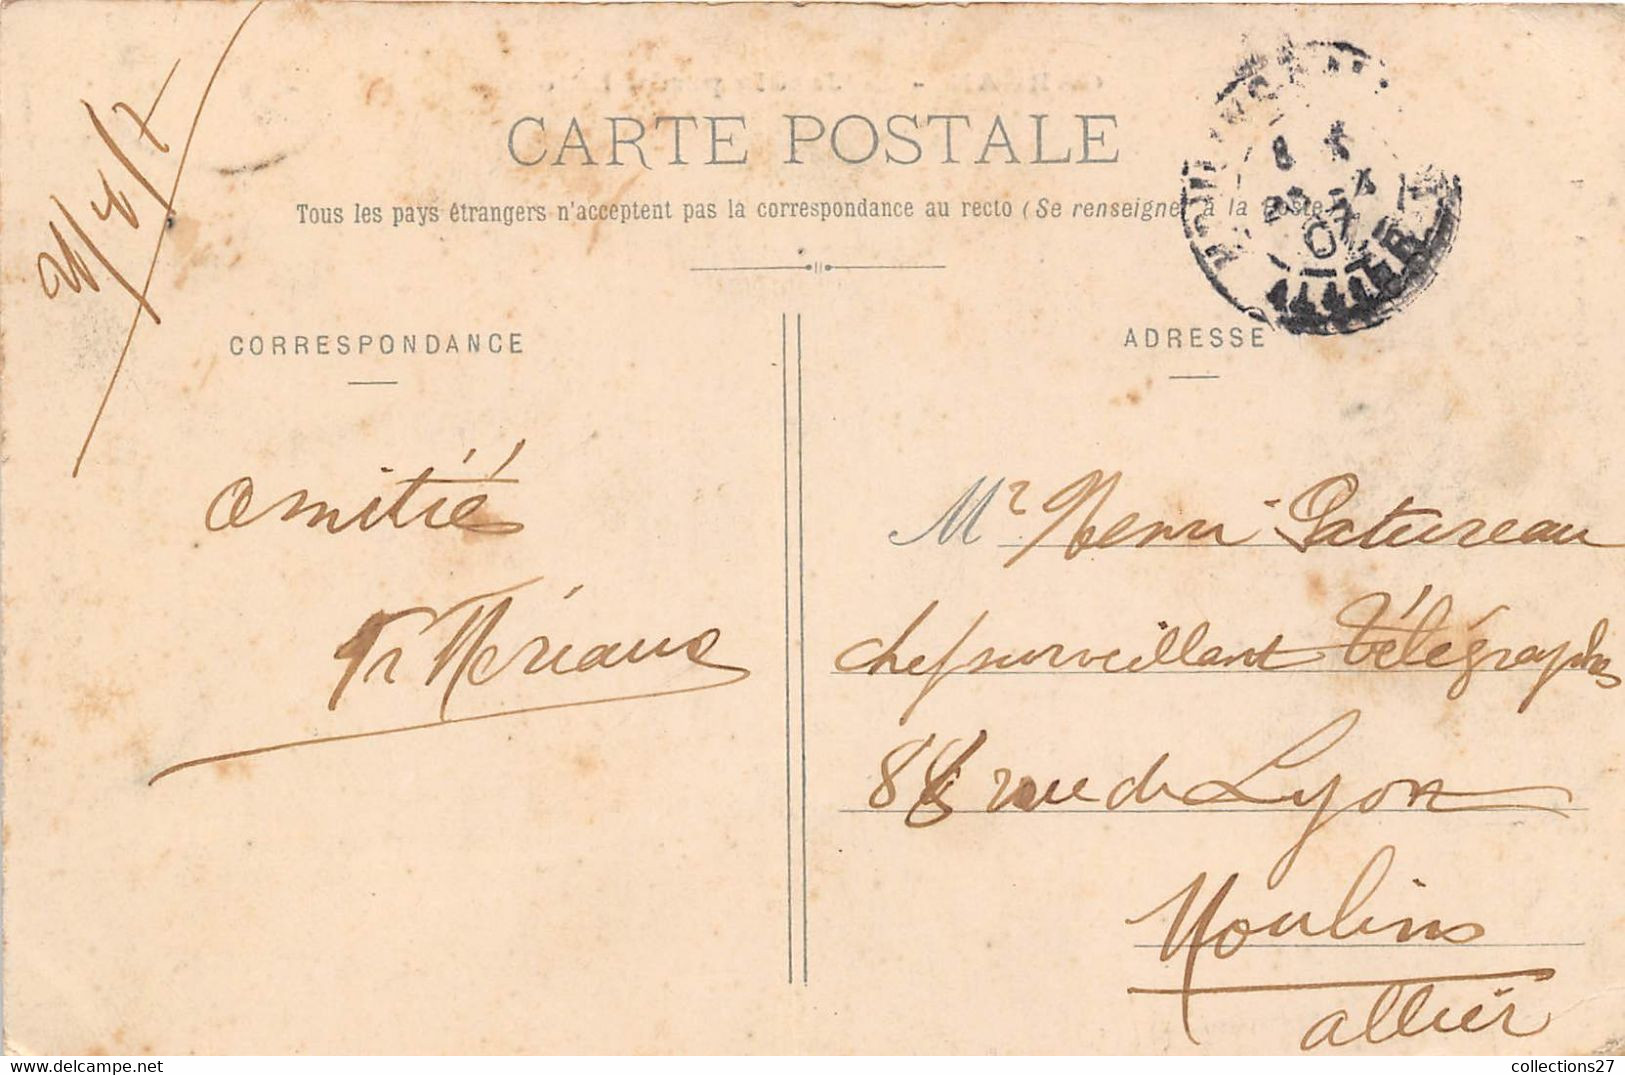 CARTE POSTALE
Tous les pays étrangers n'acceptent pas la correspondance au recto (Se renseigner à la Poste
CORRESPONDANCE
ADRESSE
Amitié
Mr Henri Patureau
chef surveillant Télégraphes
88 rue de Lyon
Moulins
Allier
ALLIER
collections27